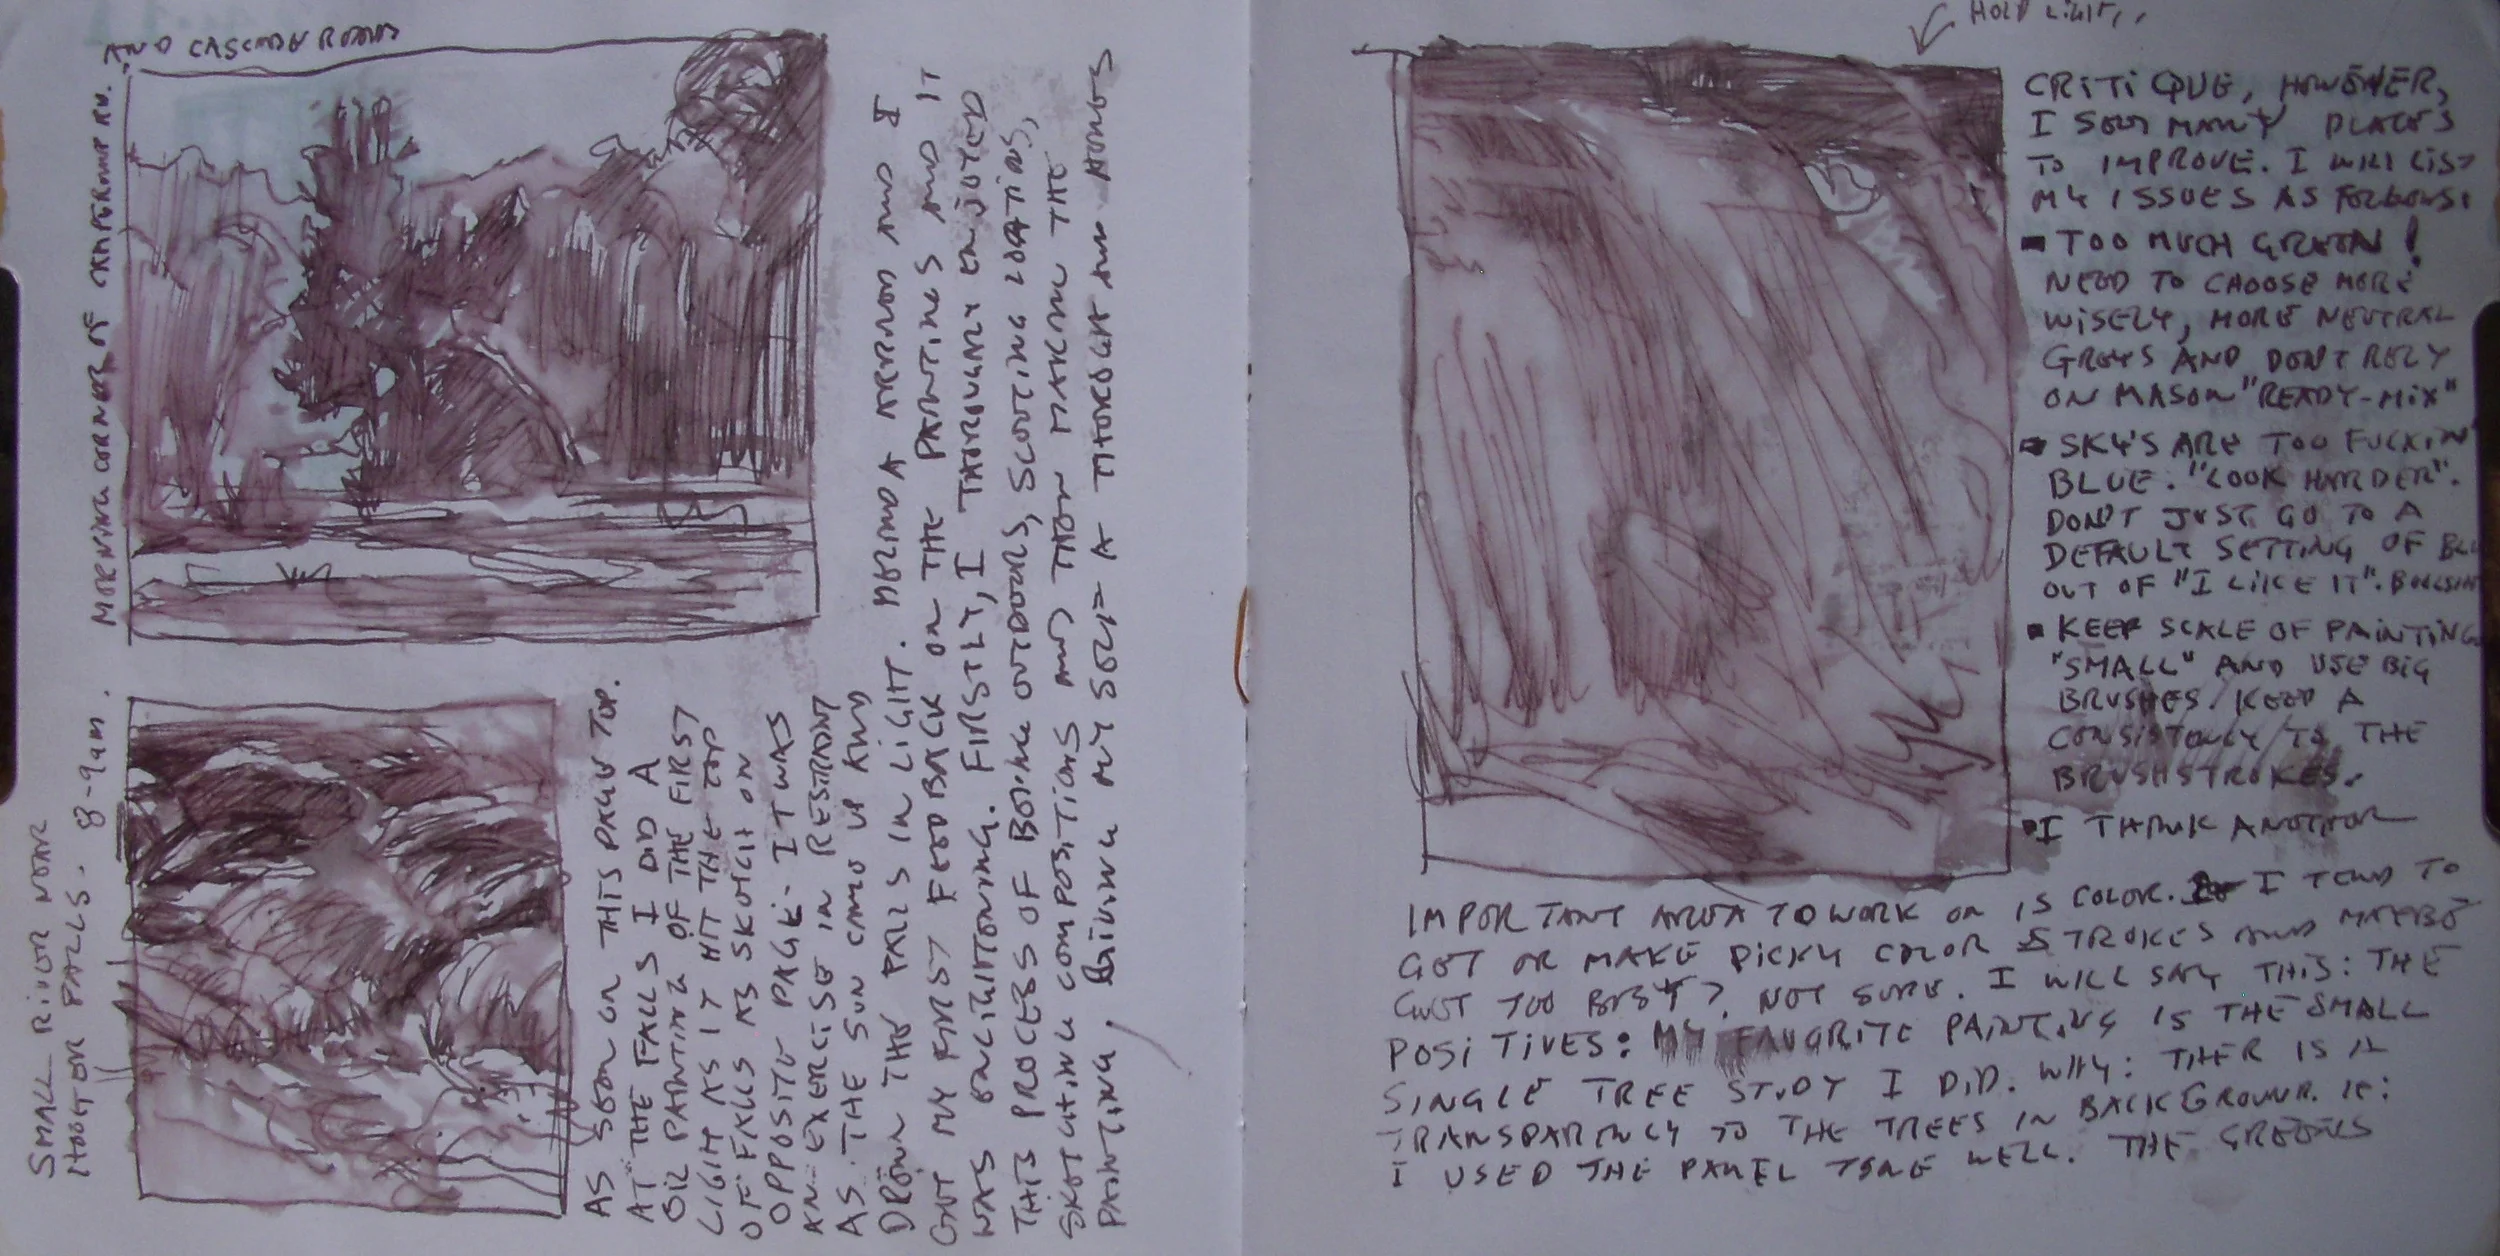 MORNING CORNER OF
AND CASCADE
SMALL RIVER NEAR
FALLS. 8-9am.
AS SEEN ON THIS PAGE TOP.
AT THE FALLS I DID A
OIL PAINTING OF THE FIRST
LIGHT AS IT HIT THE TOP
OF FALLS AS SKETCH ON
OPPOSITE PAGE. IT WAS
AN EXERCISE IN RESTRAINT
AS THE SUN CAME UP AND
THE FALLS IN LIGHT. AND I
GOT MY FIRST FEEDBACK ON THE PAINTINGS AND IT
WAS ENLIGHTENING. FIRSTLY, I ENJOYED
THIS PROCESS OF BEING OUTDOORS, SCOUTING LOCATIONS,
SKETCHING COMPOSITIONS AND THEN MAKING THE
PAINTING, GIVING MY SELF A THOROUGH AND HONEST
HOLD LIGHT,,
CRITIQUE, HOWEVER,
I SEE MANY PLACES
TO IMPROVE. I WILL LIST
MY ISSUES AS FOLLOWS:
- TOO MUCH GREEN!
NEED TO CHOOSE MORE
WISELY, MORE NEUTRAL
GREYS AND DON'T RELY
ON MASON "READY-MIX"
- SKY'S ARE TOO FUCKIN
BLUE. "LOOK HARDER".
DON'T JUST GO TO A
DEFAULT SETTING OF
OUT OF "I LIKE IT".
- KEEP SCALE OF PAINTINGS
"SMALL" AND USE BIG
BRUSHES. KEEP A
CONSISTENCY TO THE
BRUSHSTROKES.
- I THINK ANOTHER
IMPORTANT AREA TO WORK ON IS COLOR. I TEND TO
GET OR MAKE PICKY COLOR STROKES AND MAYBE
GET TOO BUSY? NOT SURE. I WILL SAY THIS: THE
POSITIVES: MY FAVORITE PAINTING IS THE SMALL
SINGLE TREE STUDY I DID. WHY: THER IS A
TRANSPARENCY TO THE TREES IN BACKGROUND. IE:
I USED THE PANEL TONE WELL. THE GREENS